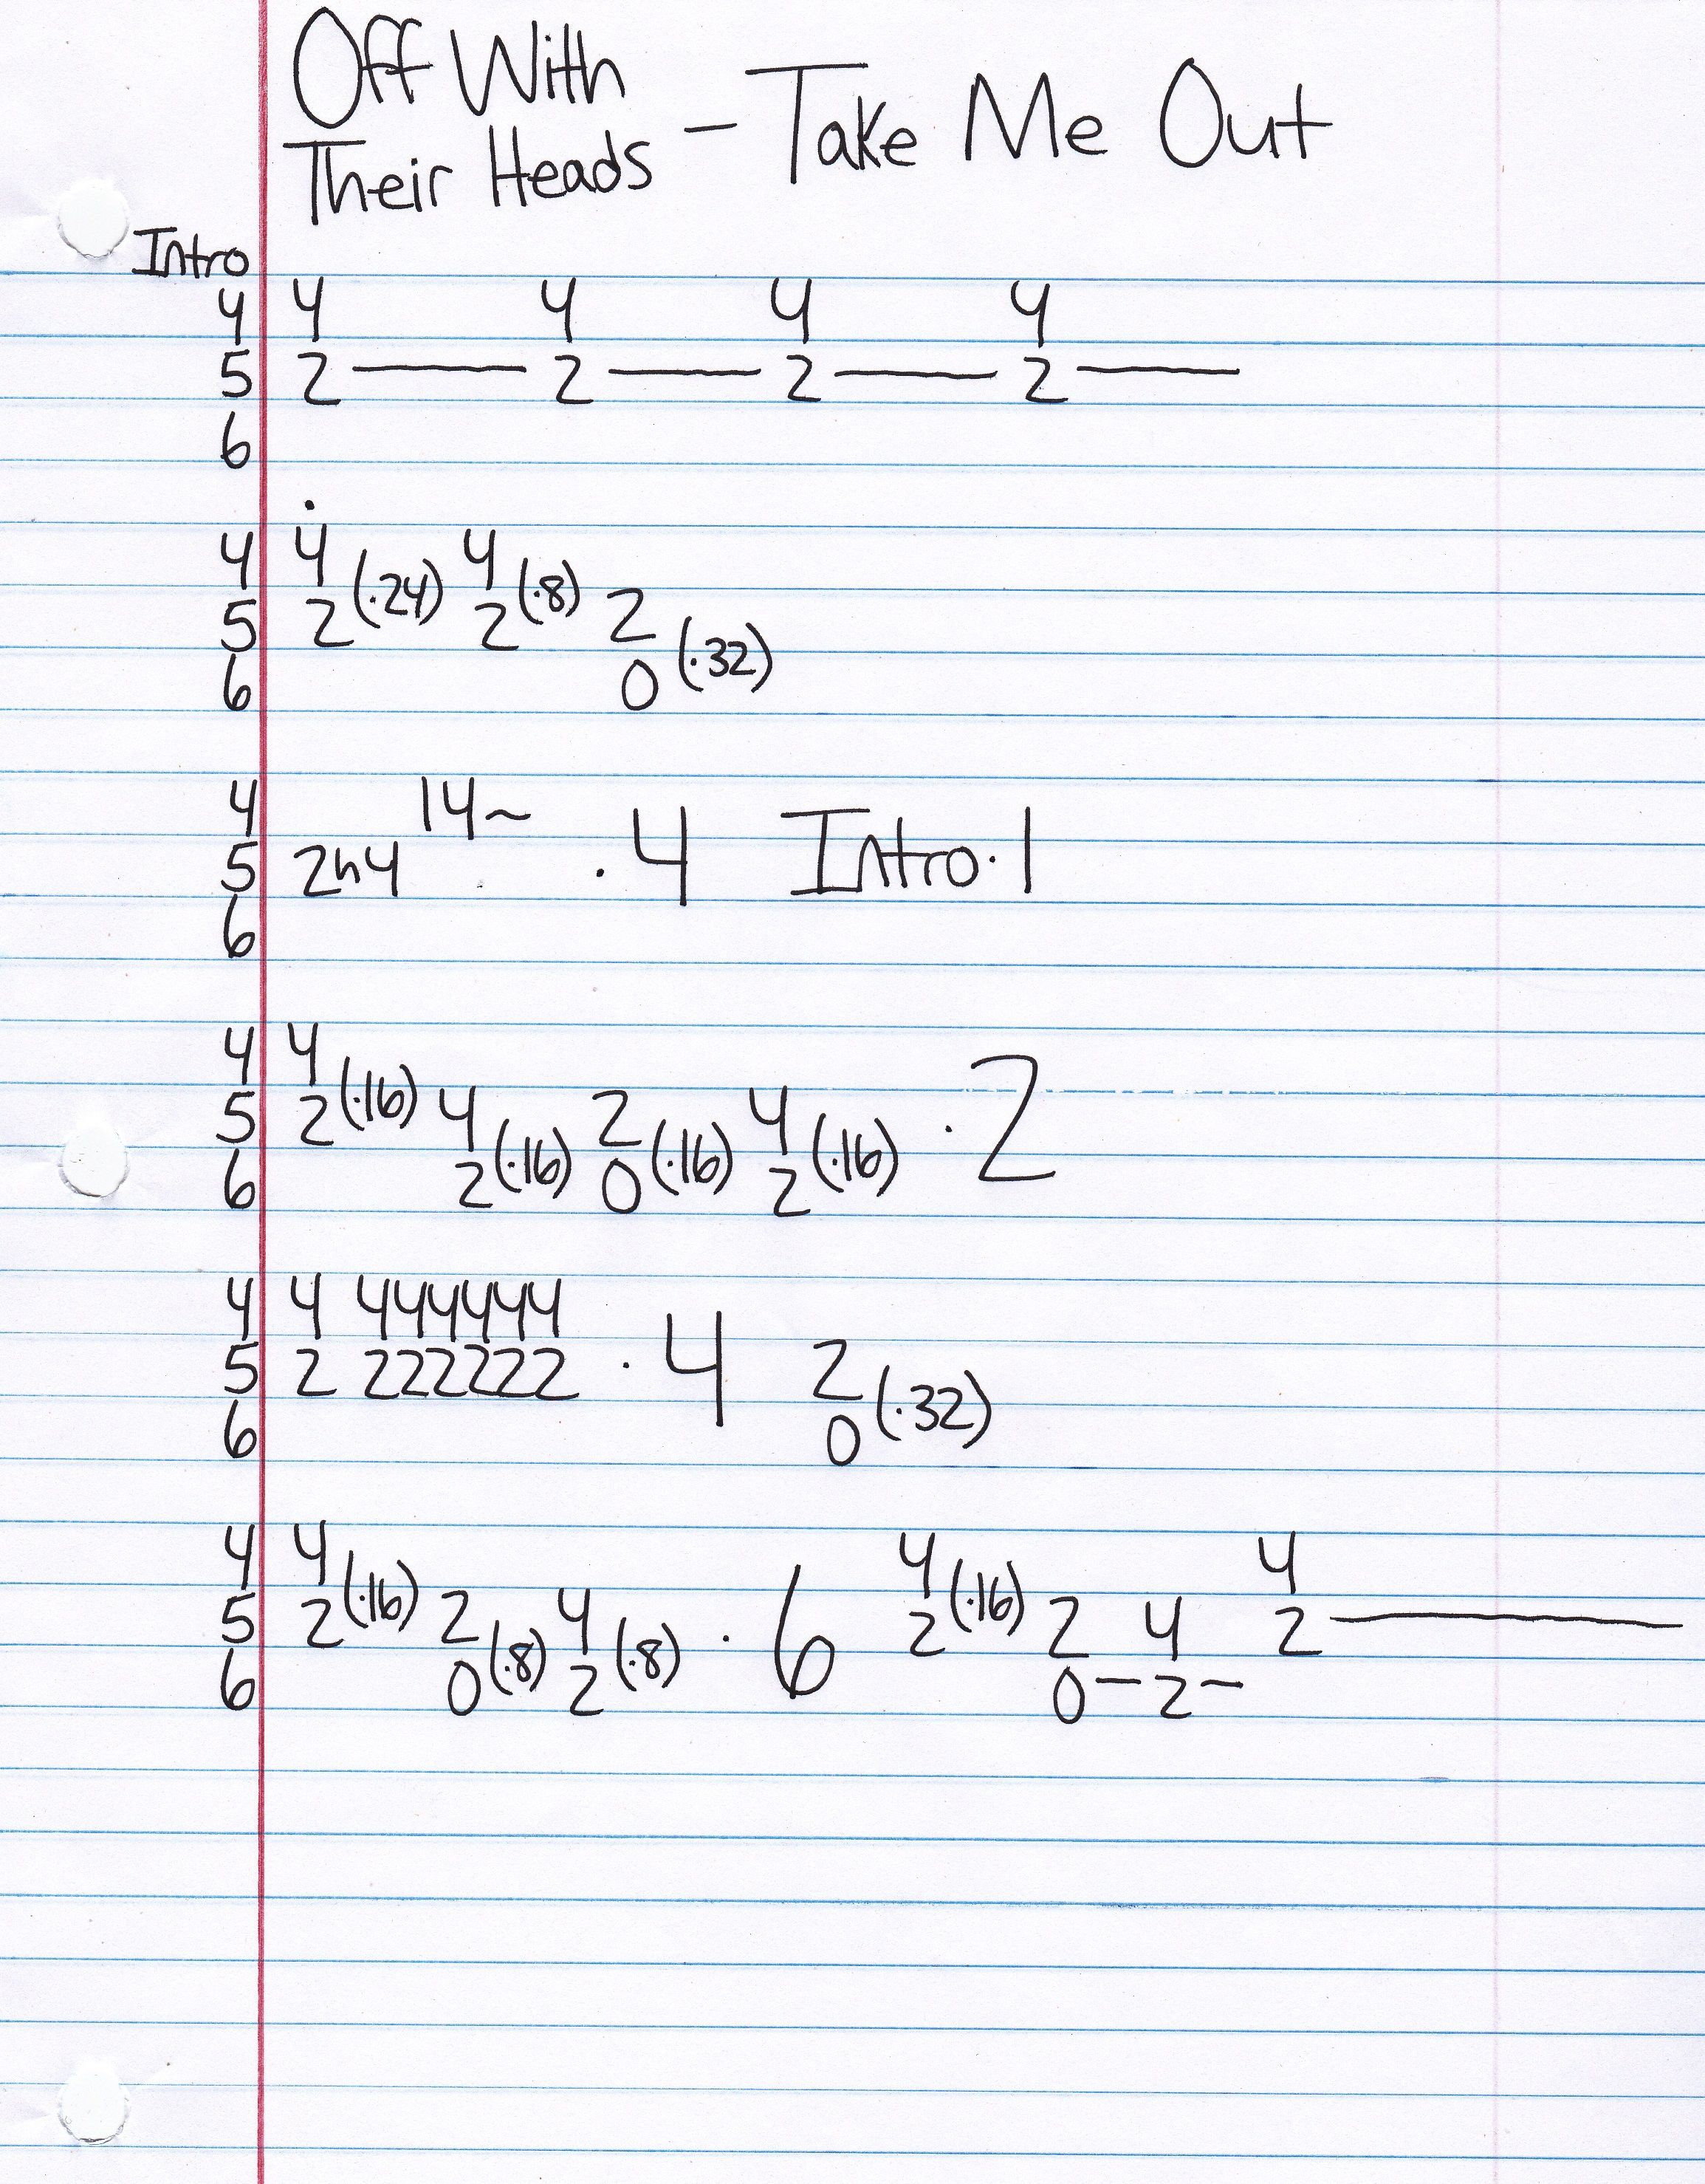 Off With
Their Heads - Take Me Out
Intro
4 4 4 4 4
5 2 — 2 — 2 — 2 —
6
4 4 (·24) 4 (·8)
5 2 2 2 (·32)
6 0
4 14~
5 2h4 · 4 Intro · 1
6
4 4 (·16)
5 2 4 (·16) 2 (·16) 4 (·16) · 2
6 2 0 2
4 4 444444
5 2 222222 · 4 2 (·32)
6 0
4 4 (·16) 4 (·16) 4
5 2 2 (·8) 4 (·8) · 6 2 2 4 2 —
6 0 2 0 - 2 -